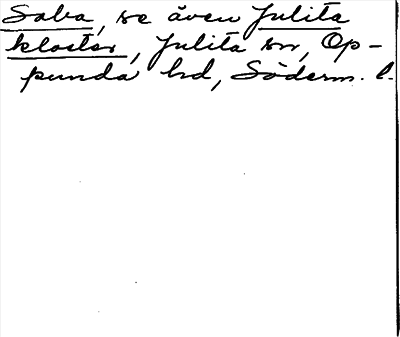 Saba, se även Julita
kloster, Julita sn, Op-
punda hd, Söderm. l.